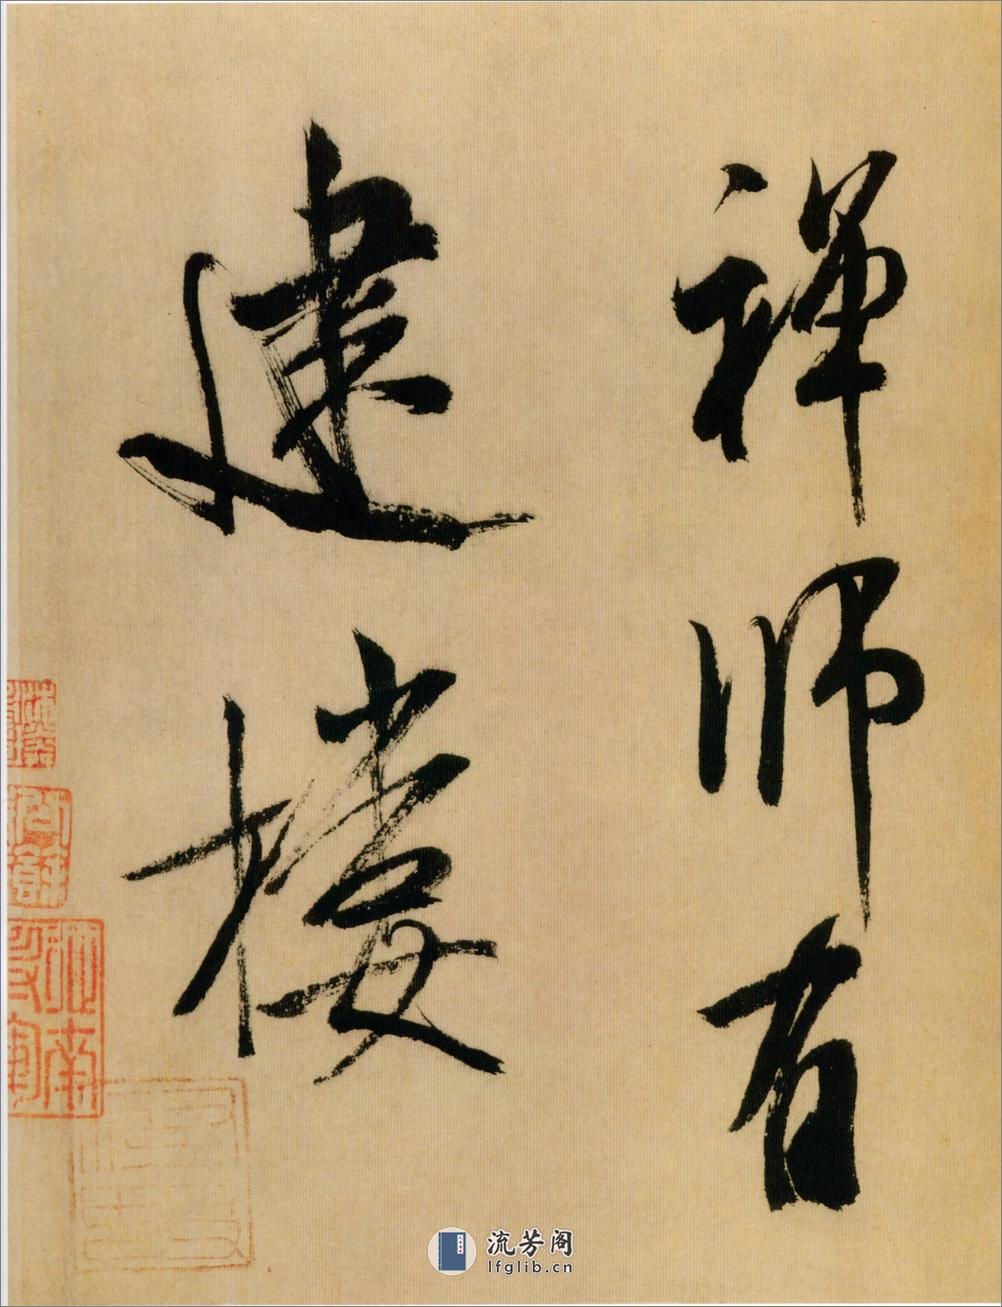 禪師有
建樓
流芳阁
lfglib.cn